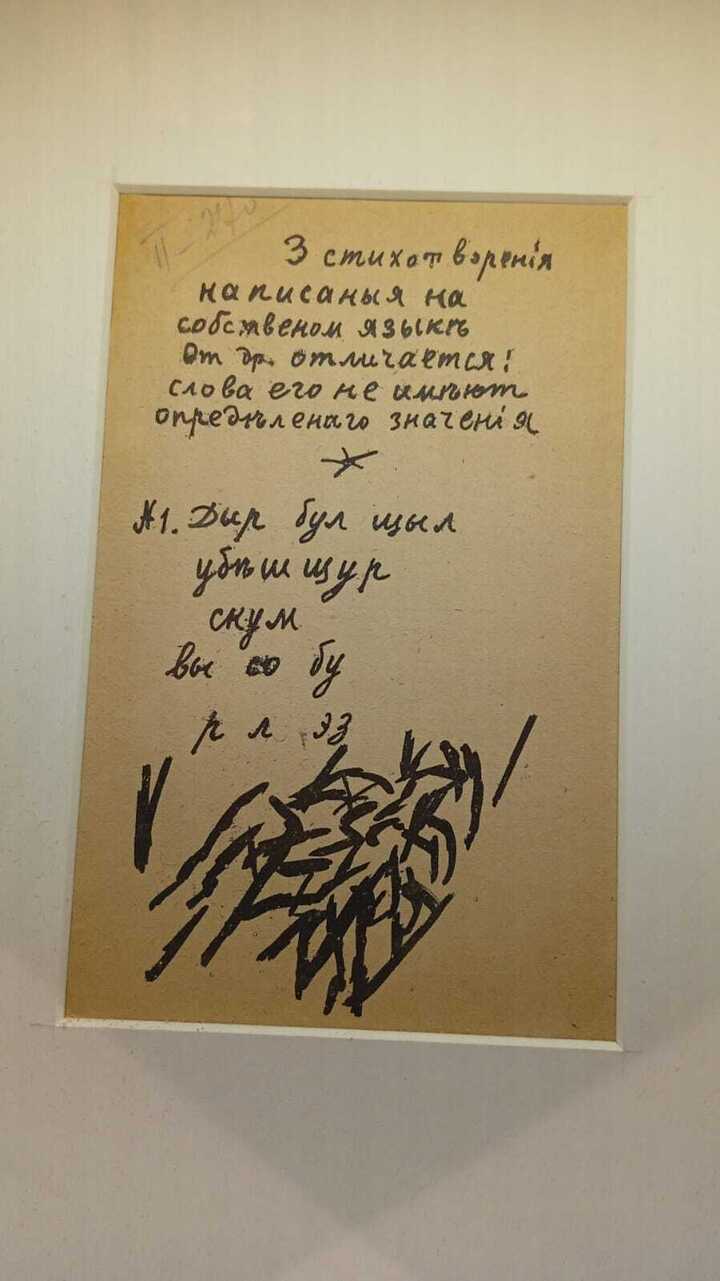 II-270
3 стихотворенія
написаныя на
собственом языкѣ
От др. отличается:
слова его не имѣют
опредѣленаго значенія
№1. Дыр бул щыл
убѣшщур
скум
вы со бу
р л эз